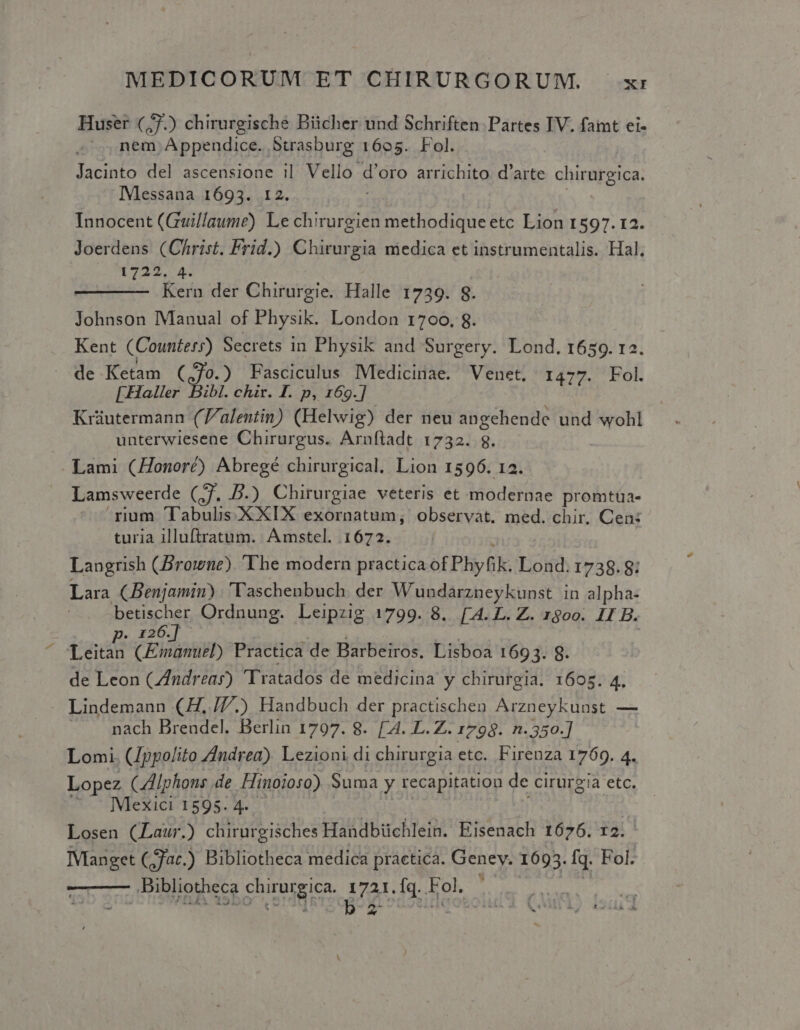 MEDICORUM ET CHIRURGORUM. XI
Huser (J.) chirurgische Bücher und Schriften Partes IV. samt ei-
nem Appendice. Strasburg 1605. Fol.
Jacinto del ascensione il Vello d'oro arrichito d'arte chirurgica.
Messana 1693. 12.
Innocent (Guillaume) Le chirurgien methodique etc Lion 1597. 12.
Joerdens (Christ. Frid.) Chirurgia medica et instrumentalis. Hal.
1722. 4.
——— Kern der Chirurgie. Halle 1739. 8.
Johnson Manual of Physik. London 1700. 8.
Kent (Countess) Secrets in Physik and Surgery. Lond. 1659. 12.
de Ketam (Jo.) Fasciculus Medicinae. Venet. 1477. Fol.
[Haller Bibl. chir. I. p, 169.]
Kräutermann (Valentin) (Helwig) der neu angehende und wohl
unterwiesene Chirurgus. Arnstadt 1732. 8.
Lami (Honoré) Abregé chirurgical. Lion 1596. 12.
Lamsweerde (J. B.) Chirurgiae veteris et modernae promtua-
rium Tabulis XXIX exornatum, observat. med. chir. Cen-
turia illustratum. Amstel. 1672.
Langrish (Browne) The modern practica of Physik. Lond. 1738. 8.
Lara (Benjamin) Taschenbuch der Wundarzneykunst in alpha-
betischer Ordnung. Leipzig 1799. 8. [A. L. Z. 1800. II B.
p. 126.]
Leitan (Emanuel) Practica de Barbeiros. Lisboa 1693. 8.
de Leon (Andreas) Tratados de medicina y chirurgia. 1605. 4.
Lindemann (H. W.) Handbuch der practischen Arzneykunst —
nach Brendel. Berlin 1797. 8. [A. L. Z. 1798. n. 350.]
Lomi (Ippolito Andrea) Lezioni di chirurgia etc. Firenza 1769. 4.
Lopez (Alphons de Hinoioso) Suma y recapitation de cirurgia etc.
Mexici 1595. 4.
Losen (Laur.) chirurgisches Handbüchlein. Eisenach 1676. 12.
Manget (Jac.) Bibliotheca medica practica. Genev. 1693. sq. Fol.
——— Bibliotheca chirurgica. 1721. sq. Fol.
b 2